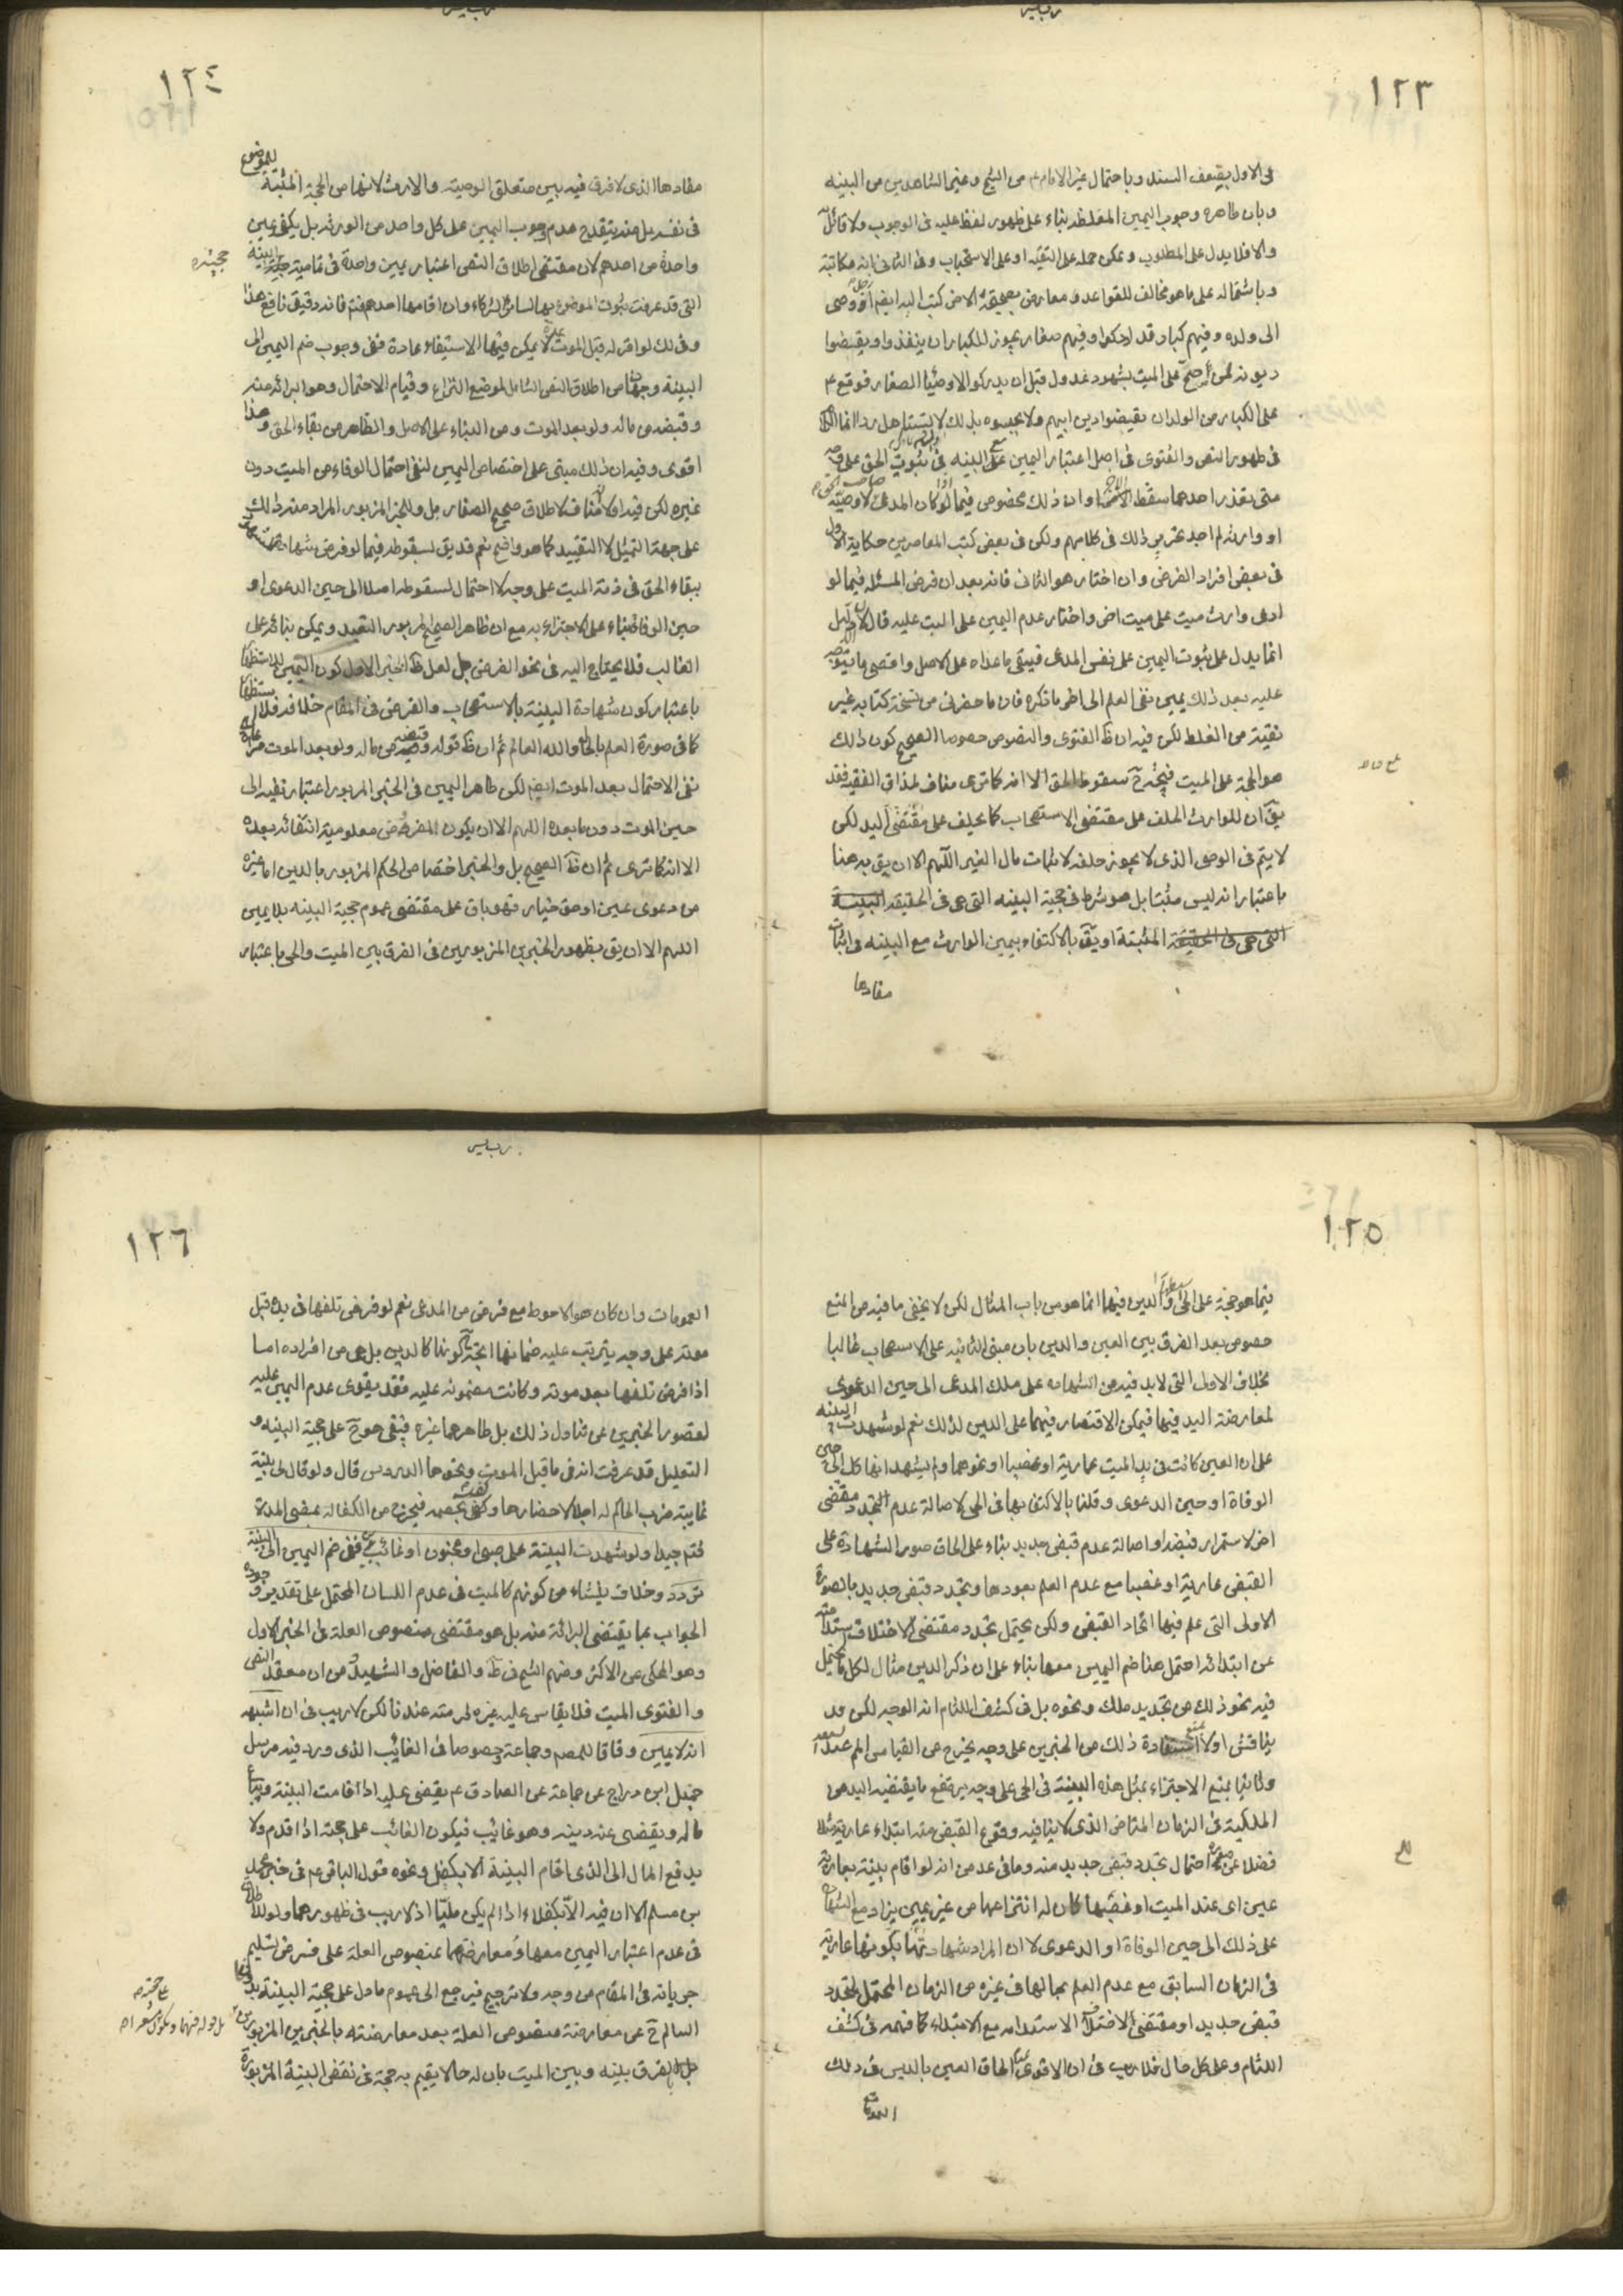 ١٢٣
فى الاول بضعف السند و باحتمال غير الامام ع من الشيخ و غيرالشاهدين من البينه
و بان ظاهره وجوب اليمين المغلظه بناء على ظهور لفظ عليه فى الوجوب ولا قائل به
والا فلا يدل على المطلوب و يمكن حمله على التقيه او على الاستحباب و فى الثانى انه مكاتبة
و باشتماله على ما هو مخالف للقواعد و معارض بصحيحة الاخر كتب اليه ايضم رجل اوصى
الى ولده و فيهم كبار قد ادركوا و فيهم صغار يجوز للكبار ان ينفذوا و يقضوا
ديونه لمن صح على الميت بشهود عدول قبل ان يدركوا الاوصيا الصغار فوقع ع
على الكبار من الولد ان يقضوا دين ابيهم ولا يحبسوه بذلك
فى ظهور النص و الفتوى فى اصل اعتبار اليمين مع البينه فى ثبوت الحق على وجه
متى تعذر احدهما سقط الاخر او ان ذلك مخصوص فيما اذا كان المدعى لا وصيه
او وارثه لم اجد تحرير ذلك فى كلامهم ولكن فى بعض كتب المعاصرين حكاية الاول
فى بعض افراد الفرض و ان اختار هو الثانى فانه بعد ان فرض المسئله فيما لو
ادعى وارث ميت على ميت اخر و اختار عدم اليمين على البت عليه قال لان الدليل
انما يدل على ثبوت اليمين على نفس المدعى فيبقى ما عداه على الاصل و اقصى ما يتوجه
عليه بعد ذلك يمين نفى العلم الى اخر ما ذكره فان ما حضرنى من نسخة كتابه غير
نقية من الغلط لكن فيه ان ظ الفتوى و النصوص خصوصا الصحيح كون ذلك
هو الحجة على الميت فيتجه ح سقوط الحق الا انه كما ترى مناف لمذاق الفقيه فقد
يق ان للوارث الحلف على مقتضى الاستصحاب كما يحلف على مقتضى اليد لكن
لا يتم فى الوصى الذى لا يجوز حلفه لاثبات مال الغير اللهم الا ان يق به هنا
باعتبار انه ليس مثبتا بل هو شرط فى حجية البينه التى هى فى الحقيقة البينة
التى هى فى الحقيقة المثبتة او يق بالاكتفاء بيمين الوارث مع البينه فى اثبات
مفادها
١٢٤
مفادها الذى لا فرق فيه بين متعلق الوصيه و الارث لانها من الحجة المثبتة للموضوع
فى نفسه بل منه ينقدح عدم وجوب اليمين على كل واحد من الورثه بل يكفى يمين
واحدة من احدهم لان مقتضى اطلاق النص اعتبار يمين واحدة فى تمامية حجية البينة
التى قد عرفت ثبوت الموضوع بها لسائر الشركاء و ان اقامها احدهم فتم فانه دقيق نافع هذا
و فى لك لو اقر له قبل الموت بمدة لا يمكن فيها الاستيفاء عادة ففى وجوب ضم اليمين الى
البينة وجهان من اطلاق النص الشامل لموضع النزاع و قيام الاحتمال وهو ابرائه منه
و قبضه من ماله ولو بعد الموت و من البناء على الاصل و الظاهر من بقاء الحق و هذا
اقوى و فيه ان ذلك مبنى على اختصاص اليمين لنفى احتمال الوفاء من الميت دون
غيره لكن فيه اولا انه مناف لاطلاق صحيح الصفار بل وللخبر المزبور المراد منه ذلك
على جهة التمثيل لا التقييد كما هو واضح نعم قد يق بسقوطه فيما لو فرض شهادتهما
ببقاء الحق فى ذمة الميت على وجه لا احتمال لسقوطه اصلا الى حين الدعوى او
حين الوفاة بناء على الاجتزاء به مع ان ظاهر الصحيح المزبور التعبد و يمكن بنائه على
الغالب فلا يحتاج اليه فى نحو الفرض بل لعل ظ الخبر الاول كون اليمين للاستظهار
باعتبار كون شهادة البينة بالاستصحاب و الفرض فى المقام خلافه فلا استظهار
كما فى صورة العلم بالحال و الله العالم ثم ان ظ قوله و قبضه من ماله ولو بعد الموت
نفى الاحتمال بعد الموت ايضم لكن ظاهر اليمين فى الخبر المزبور اعتبار نفيه الى
حين الموت دون ما بعده اللهم الا ان يكون المفروض معلومية انتفائه بعده
الا انه كما ترى ثم ان ظ الصحيح بل و الخبر اختصاص الحكم المزبور بالدين اما غيره
من دعوى عين او حق خيار فهو باق على مقتضى عموم حجية البينه بلا يمين
اللهم الا ان يق بظهور الخبرين المزبورين فى الفرق بين الميت و الحى باعتبار
١٢٥
فيما هو حجة على الحى و الدين فيها انما هو من باب المثال لكن لا يخفى ما فيه من المنع
خصوص بعد الفرق بين العين و الدين بان مبنى الثانيه على الاستصحاب غالبا
بخلاف الاولى التى لا بد فيه من الشهاده على ملك المدعى الى حين الدعوى
لمعارضة اليد فيها فيمكن الاقتصار فيهما على الدين لذلك نعم لو شهدت البينه
على ان العين كانت فى يد الميت عارية او غصبا او نحوهما ولم يشهد انها كك الى حين
الوفاة او حين الدعوى و قلنا بالاكتفاء بها فى الحى لاصالة عدم التجدد مقتضى
اخر لاستمرار قبضه او اصالة عدم قبض جديد بناء على الحاق صور الشهادة على
القبض عارية او غصبا مع عدم العلم بعودها و تجدد قبض جديد بالصورة
الاولى التى علم فيها اتحاد القبض ولكن يحتمل تجدد مقتضى لاختلاف استدامته
عن ابتدائه احتمل هنا ضم اليمين معها بناء على ان ذكر الدين مثال لكل ما يحتمل
فيه نحو ذلك من تجديد ملك و نحوه بل فى كشف اللثام انه الوجه لكن قد
يناقش اولا بمنع استفادة ذلك من الخبرين على وجه يخرج عن القياس المم عندنا
و ثانيا بمنع الاجتزاء بمثل هذه البينة فى الحى على وجه يرتفع ما يقتضيه اليد من
الملكية فى الزمان المتاخر الذى لا ينافيه وقوع القبض منه ابتداء عارية مثلا
فضلا عن احتمال تجدد قبض جديد منه وما فى عد من انه لو اقام بينة بعارية
عين اى عند الميت او غصبها كان له انتزاعها من غير يمين يراد مع الشهادة
على ذلك الى حين الوفاة او الدعوى لا ان المراد شهادتها بكونها عارية
فى الزمان السابق مع عدم العلم بحالها فى غيره من الزمان المحتمل لتجدد
قبض جديد او مقتضى لاختلاف الاستدامه مع الابتداء كما فهمه فى كشف
اللثام و على كل حال فلا ريب فى ان الاقوى عدم الحاق العين بالدين فى ذلك
العمومات
١٢٦
العمومات و ان كان هو الاحوط مع فرض من المدعى نعم لو فرض تلفها فى يده قبل
موته على وجه يترتب عليه ضمانها اتجه كونها كالدين بل هى من افراده اما
اذا فرض تلفها بعد موته و كانت مضمونه عليه فقد يقوى عدم اليمين عليه
لقصور الخبرين عن تناول ذلك بل ظاهرهما غيره فيبقى هو ح على حجية البينه و
التعليل قد عرفت انه فى ما قبل الموت و نحوها الدروس قال ولو قال لى بينة
غايبة ضرب الحاكم له اجلا لاحضارها و كفى بخصمه فيخرج من الكفالة بمضى المدة
فتم جيدا ولو شهدت البينة على صبى او مجنون او غائب ففى ضم اليمين الى البينة
تردد و خلاف ينشاء من كونهم كالميت فى عدم اللسان المحتمل على تقدير وجوده
الجواب بما يقتضى البرائة منه بل هو مقتضى منصوص العلة فى الخبر الاول
وهو المحكى عن الاكثر و منهم الشيخ فى ط و الفاضل و الشهيد و من ان معقد النص
و الفتوى الميت فلا يقاس عليه غيره لحرمته عندنا لكن لا ريب فى ان اشبهه
انه لا يمين وفاقا للمصم و جماعة خصوصا فى الغائب الذى ورد فيه مرسل
جميل ابن دراج عن جماعة عن الصادق ع يقضى عليه اذا قامت البينة و يباع
ماله و يقضى عنه دينه وهو غايب فيكون الغائب على حجته اذا قدم ولا
يدفع المال الى الذى اقام البينة الا بكفلاء و نحوه قول الباقر ع فى خبر محمد
بن مسلم الا ان فيه الا بكفلاء اذا لم يكن مليا اذ لا ريب فى ظهورهما ولو للاطلاق
فى عدم اعتبار اليمين معها و معارضتهما بمنصوص العلة على فرض تسليم
جريانه فى المقام من وجه ولا ترجيح فيرجع الى عموم ما دل على حجية البينة
السالم ح عن معارضة منصوص العلة بعد معارضته بالخبرين المزبورين
بل الفرق بينه و بين الميت بان له حالا يقيم به حجة فى نقض البينة المزبورة